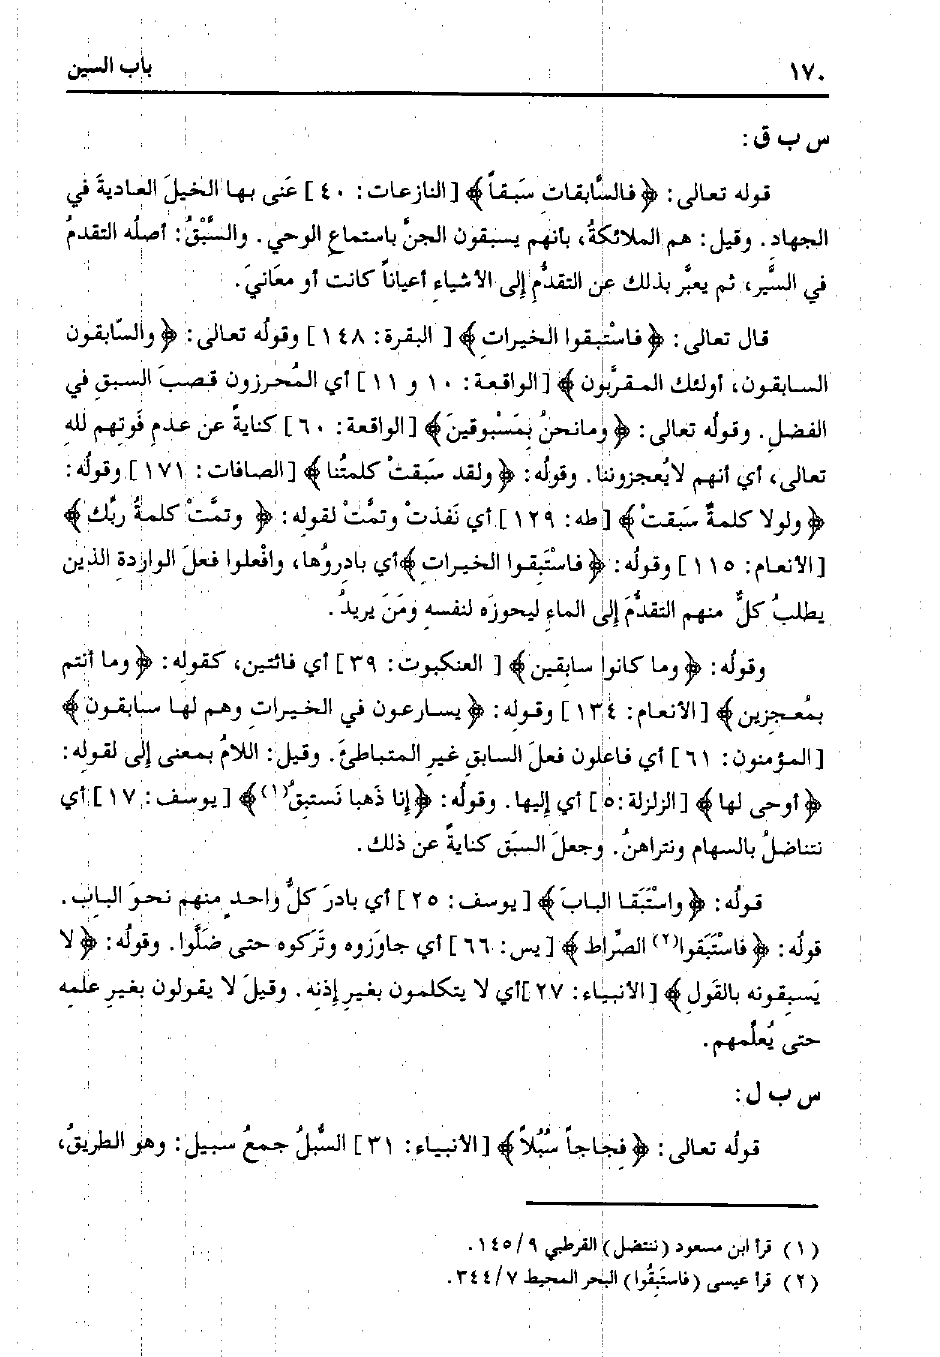 ١٧٠ باب السين
س ب ق:
قوله تعالى: ﴿ فالسَّابقاتِ سَبقاً ﴾ [ النازعات: ٤٠ ] عَنى بها الخيلَ العاديةَ في
الجهاد. وقيل: هم الملائكةُ، بأنهم يسبقون الجنَّ باستماعِ الوحي. والسَّبْقُ: أصلُه التقدمُ
في السَّير، ثم يعبَّر بذلك عن التقدُّمِ إلى الأشياءِ أعياناً كانت أو معَانيَ.
قال تعالى: ﴿ فاسْتبِقوا الخيراتِ ﴾ [ البقرة: ١٤٨ ] وقولُه تعالى: ﴿ والسّابقون
السابقون، أولئك المقرَّبون ﴾ [ الواقعة: ١٠ و ١١ ] أي المُحرزون قصبَ السبقِ في
الفضلِ. وقولُه تعالى: ﴿ ومانحنُ بِمَسْبوقينَ ﴾ [ الواقعة: ٦٠ ] كنايةً عن عدمِ فَوتِهم للهِ
تعالى، أي أنهم لايُعجزوننا. وقولُه: ﴿ ولقد سَبقتْ كلمتُنا ﴾ [ الصافات: ١٧١ ] وقولُه:
﴿ ولولا كلمةٌ سَبقتْ ﴾ [ طه: ١٢٩ ] أي نَفذتْ وتمتْ لقوله: ﴿ وتمَّتْ كلمةُ ربِّك ﴾
[ الأنعام: ١١٥ ] وقولُه: ﴿ فاستَبِقوا الخيراتِ ﴾أي بادروُها، وافْعلوا فعلَ الواردةِ الذين
يطلبُ كلٌّ منهم التقدُّمَ إلى الماءِ ليحوزَه لنفسهِ ومَنَ يريدُ.
وقولُه: ﴿ وما كانوا سابِقين ﴾ [ العنكبوت: ٣٩ ] أي فائتين، كقوله: ﴿ وما أنتم
بمُعجزين ﴾ [ الأنعام: ١٣٤ ] وقولِه: ﴿ يسارعون في الخيراتِ وهم لها سابقون ﴾
[ المؤمنون: ٦١ ] أي فاعلون فعلَ السابقِ غيرِ المتباطئَ. وقيل: اللامُ بمعنى إلى لقولهِ:
﴿ أوحى لها ﴾ [ الزلزلة:٥ ] أي إليها. وقولُه: ﴿ إنا ذَهبا نَستبِقُ(١) ﴾ [ يوسف: ١٧ ] أي
نتناضلُ بالسهام ونتراهنُ. وجعلَ السبَق كنايةً عن ذلك.
قولُه: ﴿ واسْتَبَقا البابَ ﴾ [ يوسف: ٢٥ ] أي بادرَ كلُّ واحدٍ منهم نحوَ البابِ.
قولُه: ﴿ فاسْتَبَقوا(٢) الصِّراطَ ﴾ [ يس: ٦٦ ] أي جاوَزوه وتَركوه حتى ضَلَّوا. وقولُه: ﴿ لا
يَسبِقونه بالقَولِ ﴾ [ الأنبياء: ٢٧ ]أي لا يتكلمون بغيرِ إذنِه. وقيلَ لا يقولون بغيرِ علمِه
حتى يُعلِّمهم.
س ب ل:
قولُه تعالى: ﴿ فِجاجاً سُبُلاً ﴾ [ الأنبياء: ٣١ ] السُّبلُ جمعُ سبيل: وهو الطريقُ،
( ١ ) قرأ ابن مسعود ( ننتضل ) القرطبي ١٤٥/٩.
( ٢ ) قرأ عيسى ( فاستَبِقُوا ) البحر المحيط ٣٤٤/٧.